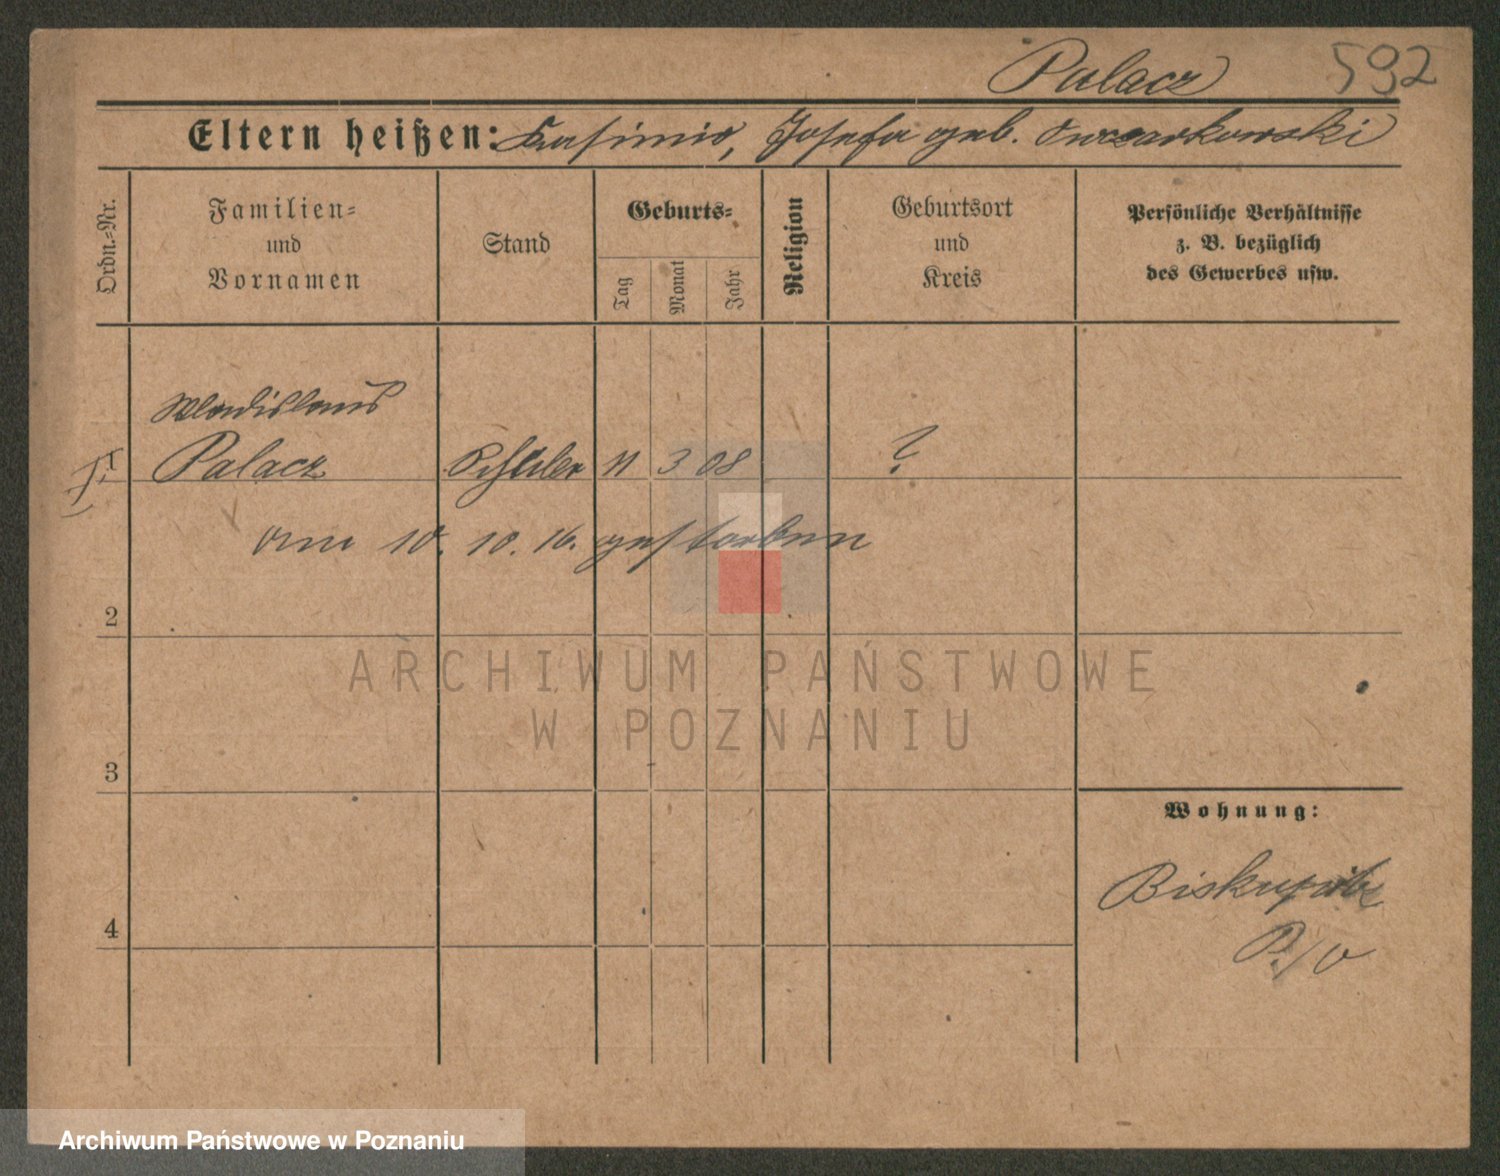 Palacz 592
Eltern heißen: Kasimir, Josefa geb.
Ordn.-Nr.
Familien-
und
Vornamen
Stand
Geburts-
Tag
Monat
Jahr
Religion
Geburtsort
und
Kreis
Persönliche Verhältnisse
z. B. bezüglich
des Gewerbes usw.
Wladislaus
1 Palacz Schüler 11 3 08 ?
am 10. 10. 16. gestorben
2
ARCHIWUM PAŃSTWOWE
W POZNANIU
3
Wohnung:
4
Archiwum Państwowe w Poznaniu